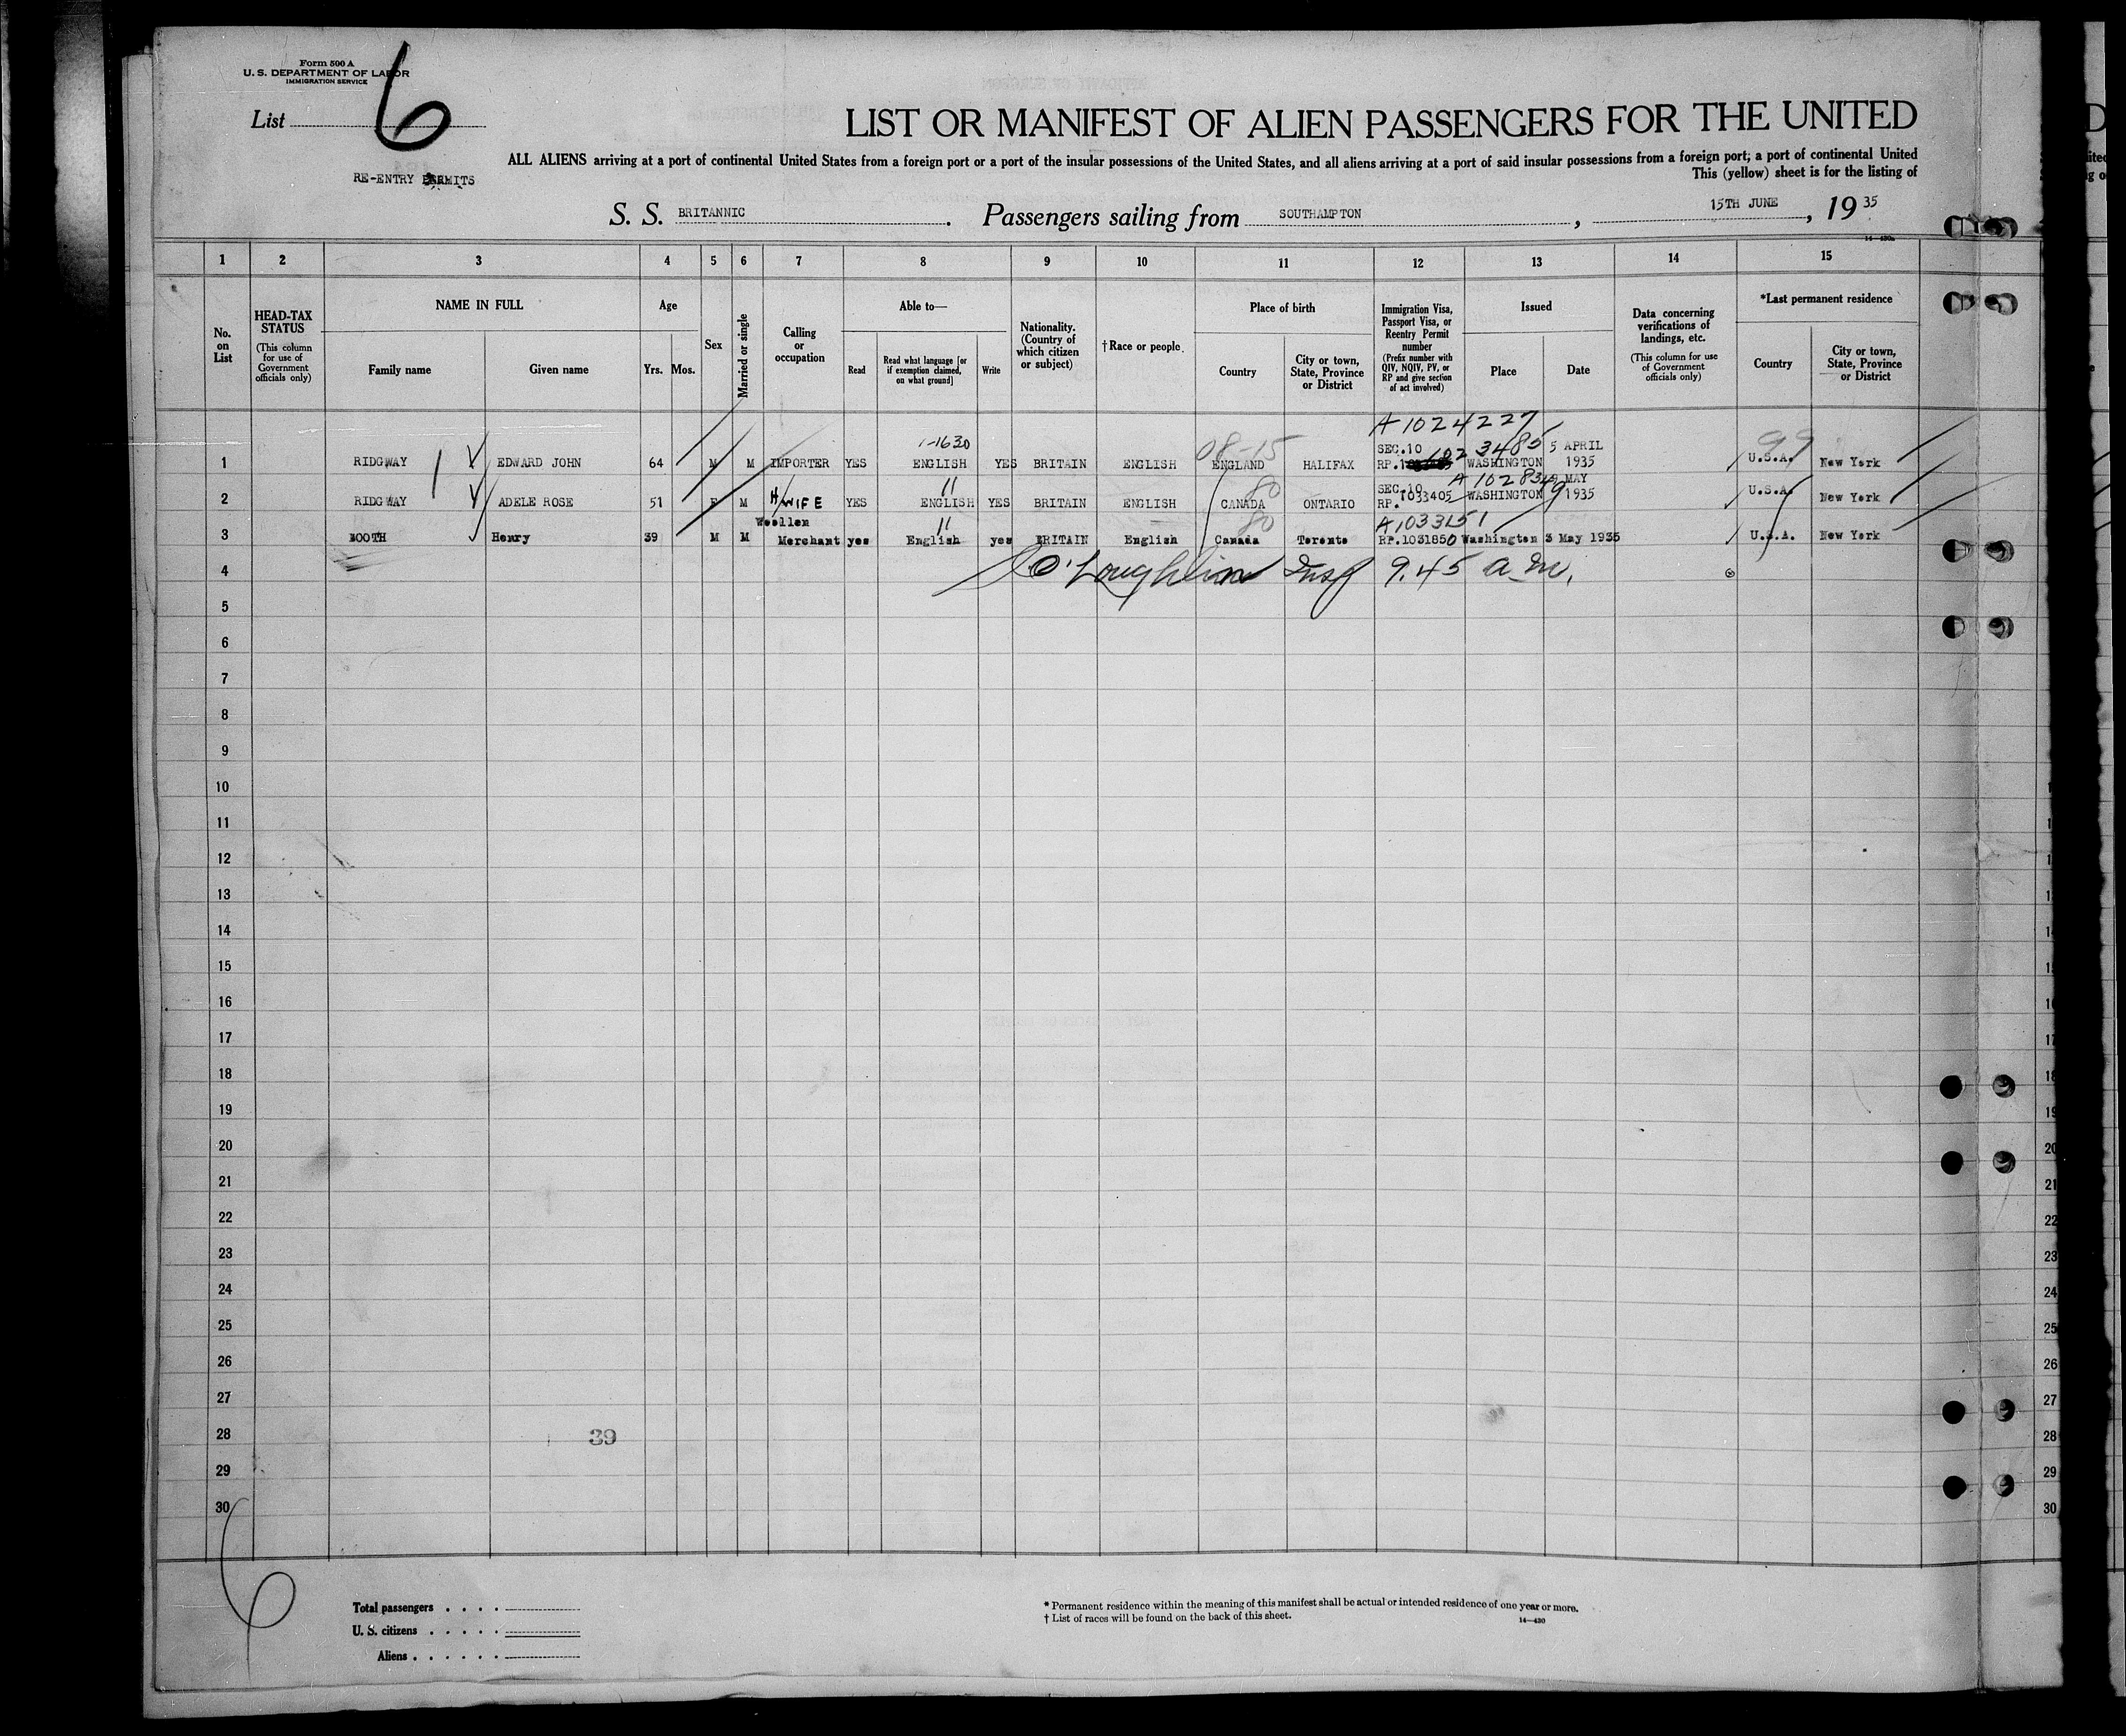 Form 500 A
U. S. DEPARTMENT OF LABOR
IMMIGRATION SERVICE
List 6
RE-ENTRY PERMITS
LIST OR MANIFEST OF ALIEN PASSENGERS FOR THE UNITED
ALL ALIENS arriving at a port of continental United States from a foreign port or a port of the insular possessions of the United States, and all aliens arriving at a port of said insular possessions from a foreign port; a port of continental United
This (yellow) sheet is for the listing of
S. S. BRITANNIC . Passengers sailing from SOUTHAMPTON , 15TH JUNE , 19 35
1 2 3 4 5 6 7 8 9 10 11 12 13 14 15
No. on List
HEAD-TAX STATUS
(This column for use of Government officials only)
NAME IN FULL
Family name Given name
Age
Yrs. Mos.
Sex
Married or single
Calling or occupation
Able to—
Read
Read what language [or if exemption claimed, on what ground]
Write
Nationality. (Country of which citizen or subject)
†Race or people
Place of birth
Country
City or town, State, Province or District
Immigration Visa, Passport Visa, or Reentry Permit number
(Prefix number with QIV, NQIV, PV, or RP and give section of act involved)
Issued
Place Date
Data concerning verifications of landings, etc.
(This column for use of Government officials only)
*Last permanent residence
Country
City or town, State, Province or District
A 1024227
1-1630 08-15 SEC.10 1023485 5 APRIL 99
1 RIDGWAY EDWARD JOHN 64 M M IMPORTER YES ENGLISH YES BRITAIN ENGLISH ENGLAND HALIFAX RP. WASHINGTON 1935 U.S.A. New York
11 80 SEC.10 MAY
2 RIDGWAY ADELE ROSE 51 F M H/WIFE YES ENGLISH YES BRITAIN ENGLISH CANADA ONTARIO RP. 1033405 WASHINGTON 1935 U.S.A. New York
Woollen 11 80 A 1033151
3 BOOTH Henry 39 M M Merchant yes English yes BRITAIN English Canada Toronto RP.1031850 Washington 3 May 1935 U.S.A. New York
4 O'Loughlin Insp 9.45 a.m.
5
6
7
8
9
10
11
12
13
14
15
16
17
18
19
20
21
22
23
24
25
26
27
28 39
29
30
6
Total passengers
U. S. citizens
Aliens
* Permanent residence within the meaning of this manifest shall be actual or intended residence of one year or more.
† List of races will be found on the back of this sheet.
14—430